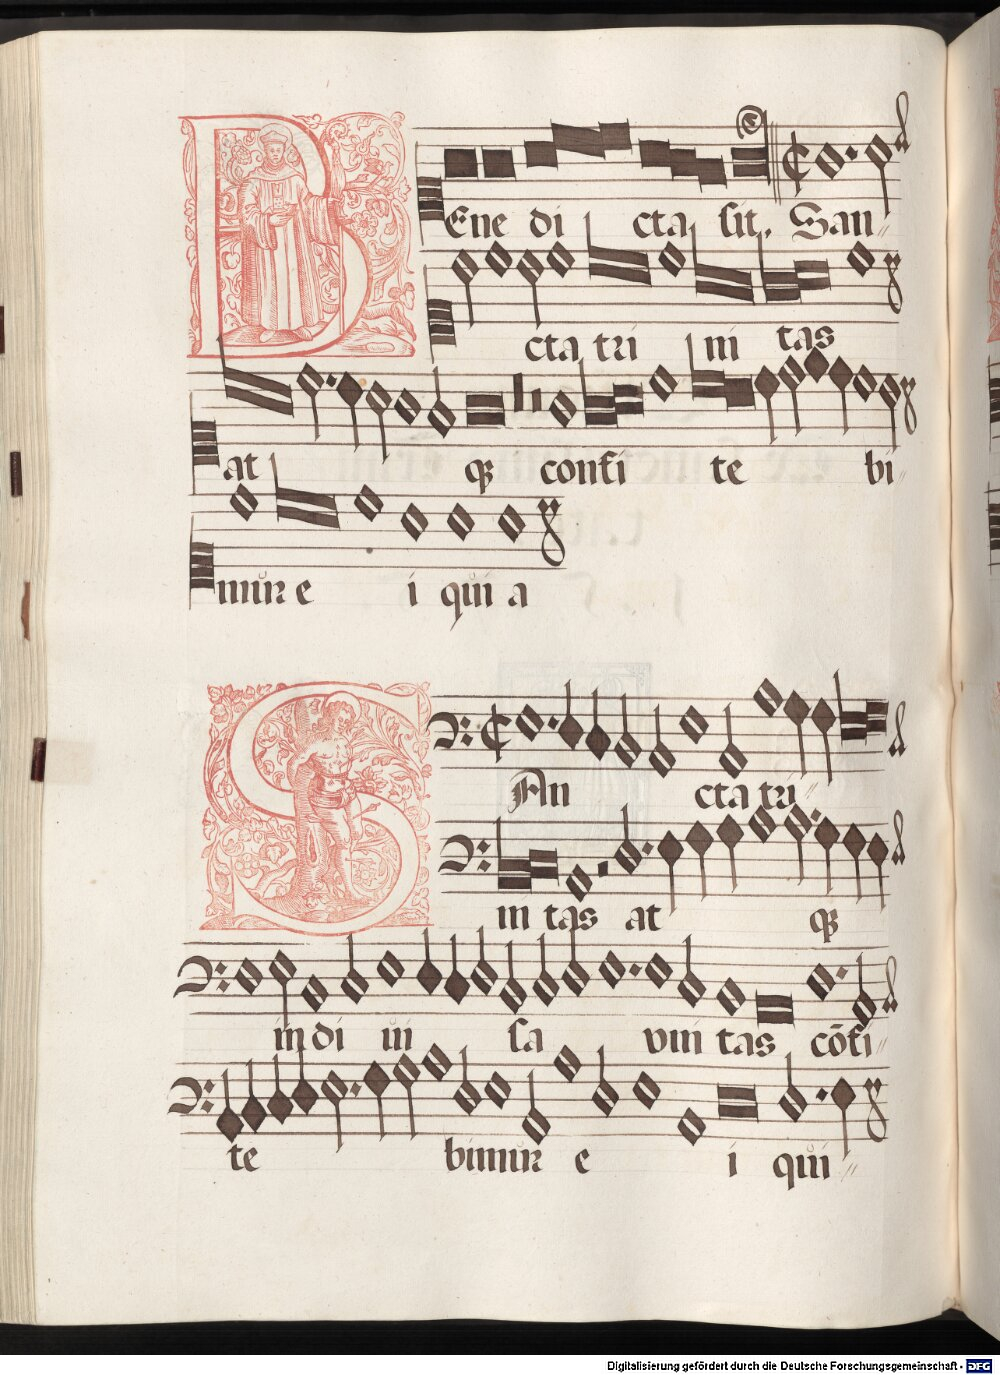 BEne di cta sit. San
cta tri ni tas
at qꝫ confi te bi
mur e i qui a
SAn cta tri
ni tas at qꝫ
in di ui sa vni tas cōfi
te bimur e i qui
Digitalisierung gefördert durch die Deutsche Forschungsgemeinschaft - DFG